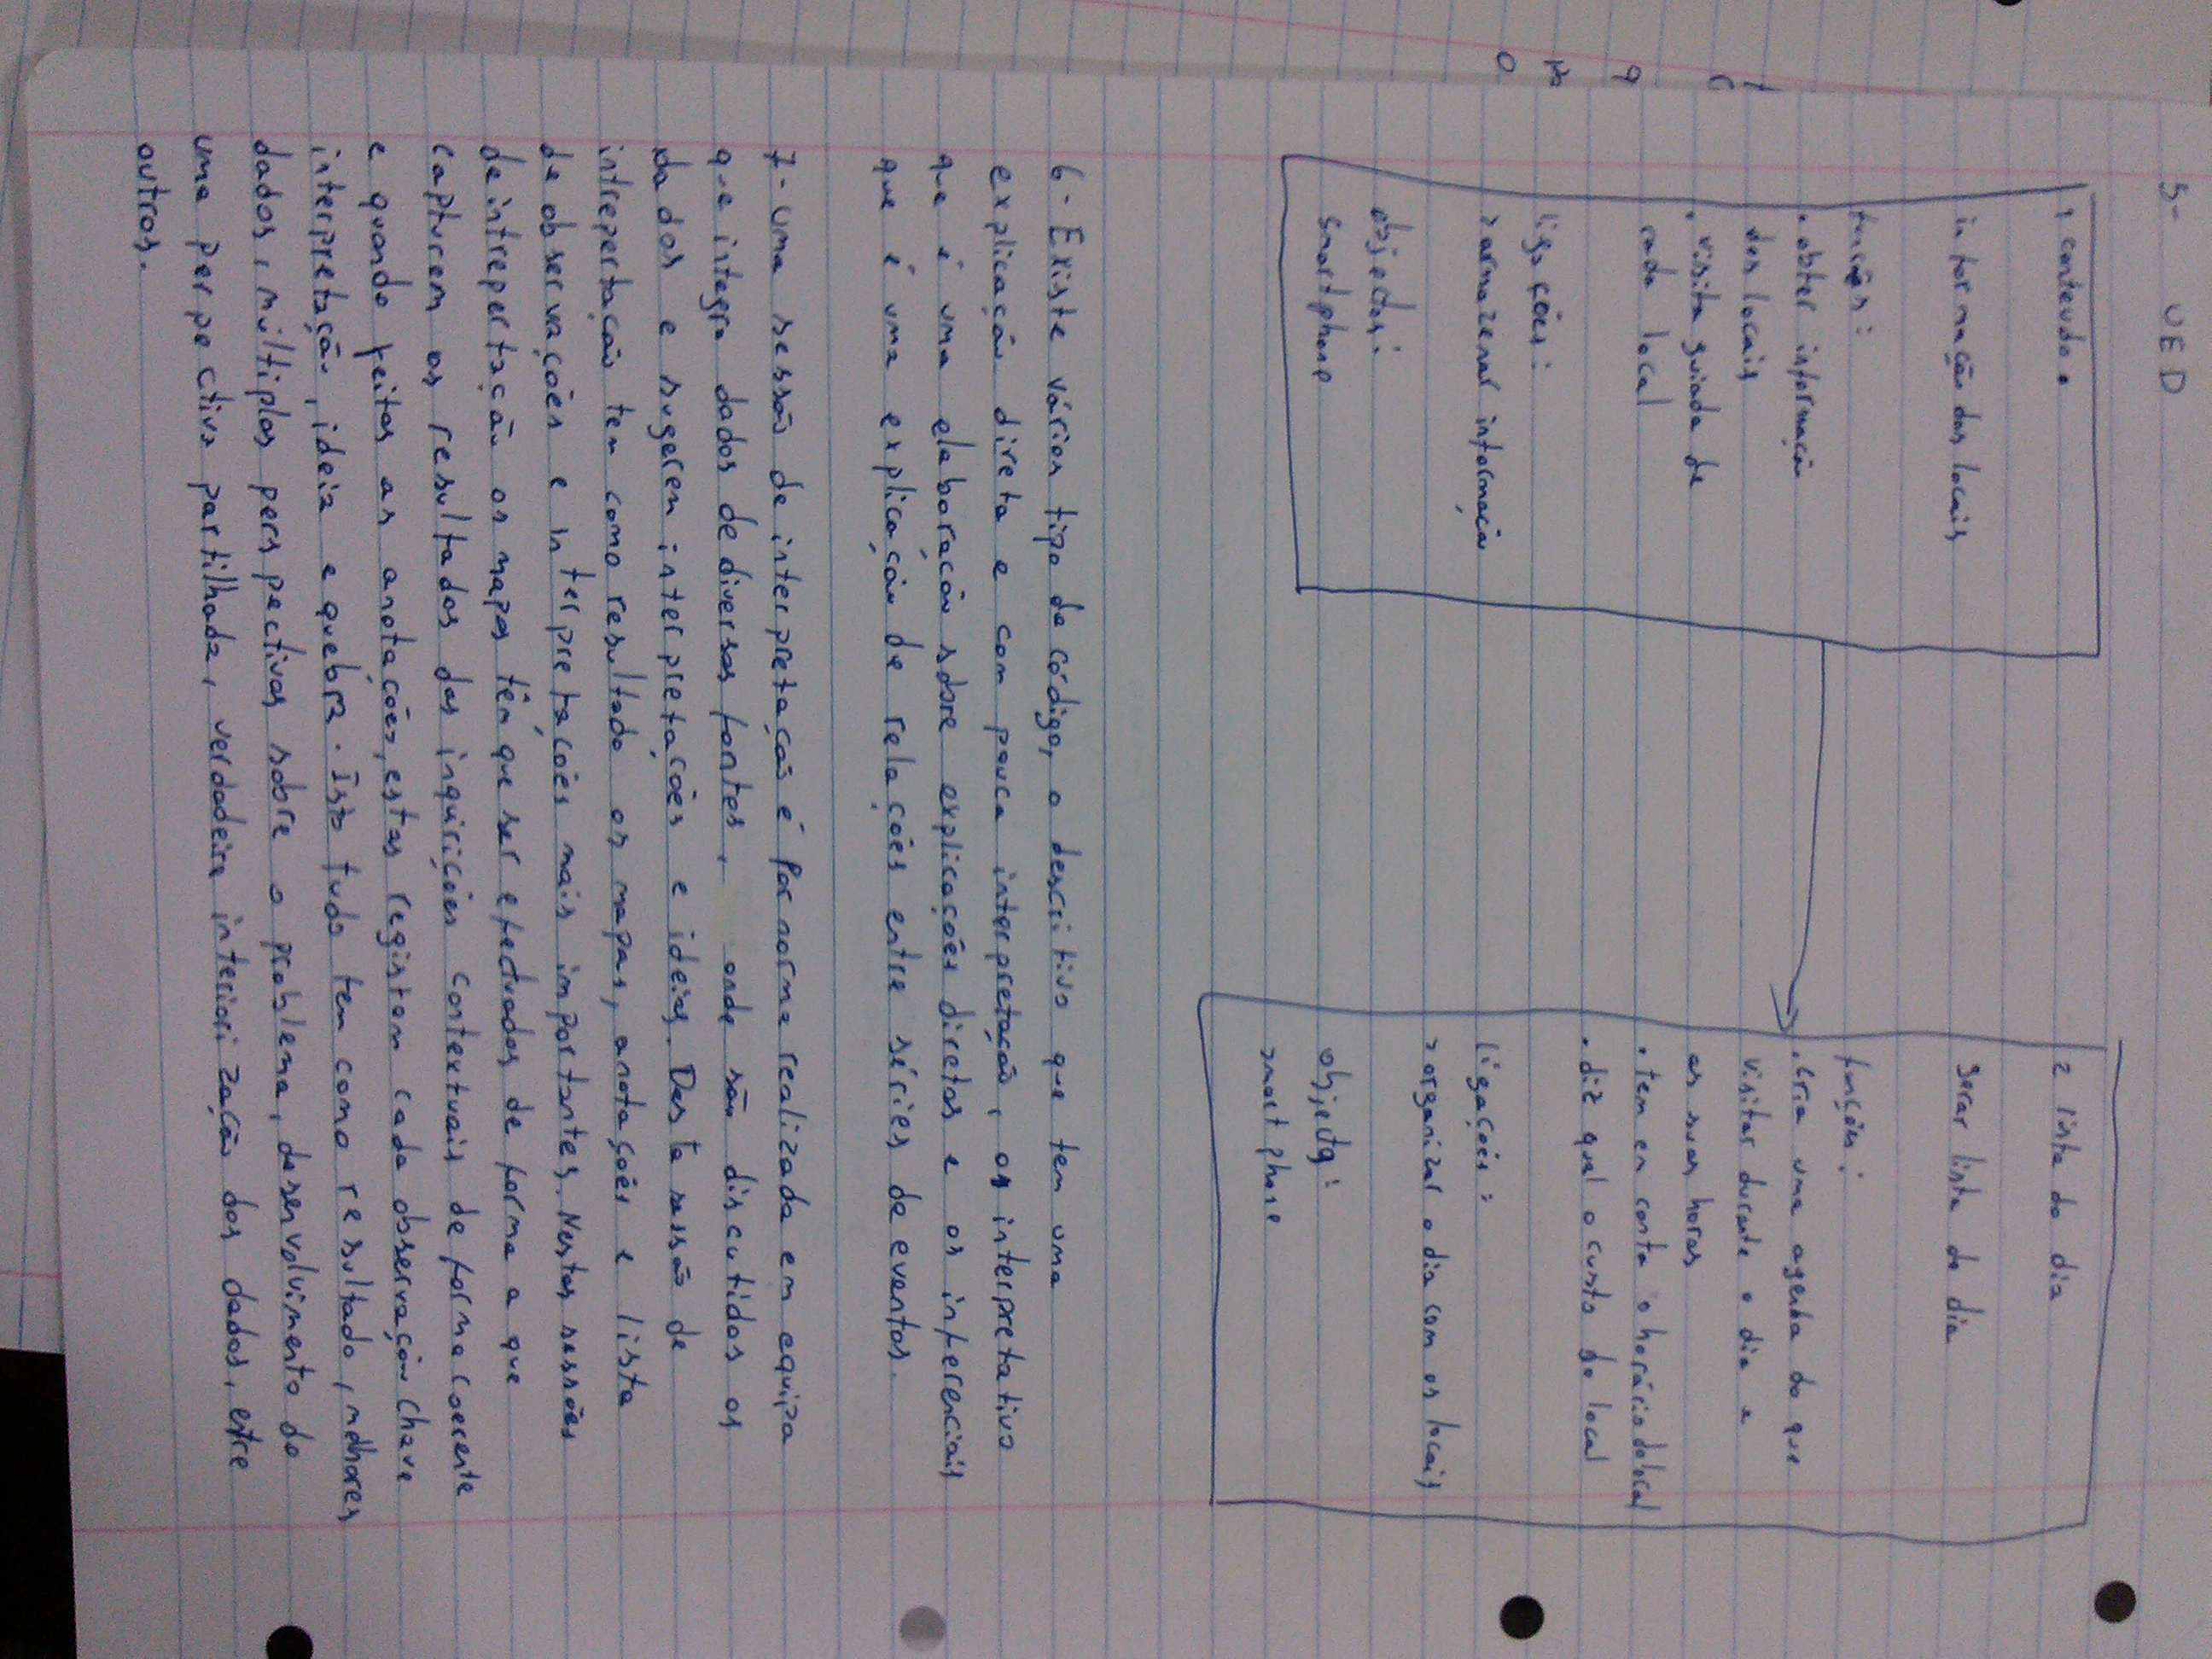 5- UED
1 conteudo.
informação dos locais
funções:
. obter informação
dos locais
. visita guiada de
cada local
ligações:
> armazenar informação
objectos:
smartphone
2 lista do dia
gerar lista do dia
funções:
. cria uma agenda do que
visitar durante o dia e
as suas horas
. tem em conta o horário do local
. diz qual o custo do local
ligações:
> organizar o dia com os locais
objectos:
smartphone
6- Existe vários tipo de código, o descritivo que tem uma
explicação direta e com pouca interpretação, os interpretativo
que é uma elaboração sobre explicações diretas e os inferenciais
que é uma explicação de relações entre séries de eventos.
7- Uma sessão de interpretação é por norma realizada em equipa
que integra dados de diversas fontes, onde são discutidos os
dados e sugerem interpretações e ideias. Desta sessão de
intrepertação tem como resultado os mapas, anotações e lista
de observações e interpretações mais importantes. Nestas sessões
de intrepertação os mapas têm que ser efectuados de forma a que
capturem os resultados das inquirições contextuais de forma coerente
e quando feitas as anotações, estas registem cada observação chave
interpretação, ideia e quebra. Isto tudo tem como resultado, melhores
dados, múltiplas perspectivas sobre o problema, desenvolvimento de
uma perpectiva partilhada, verdadeira interiorização dos dados, entre
outros.